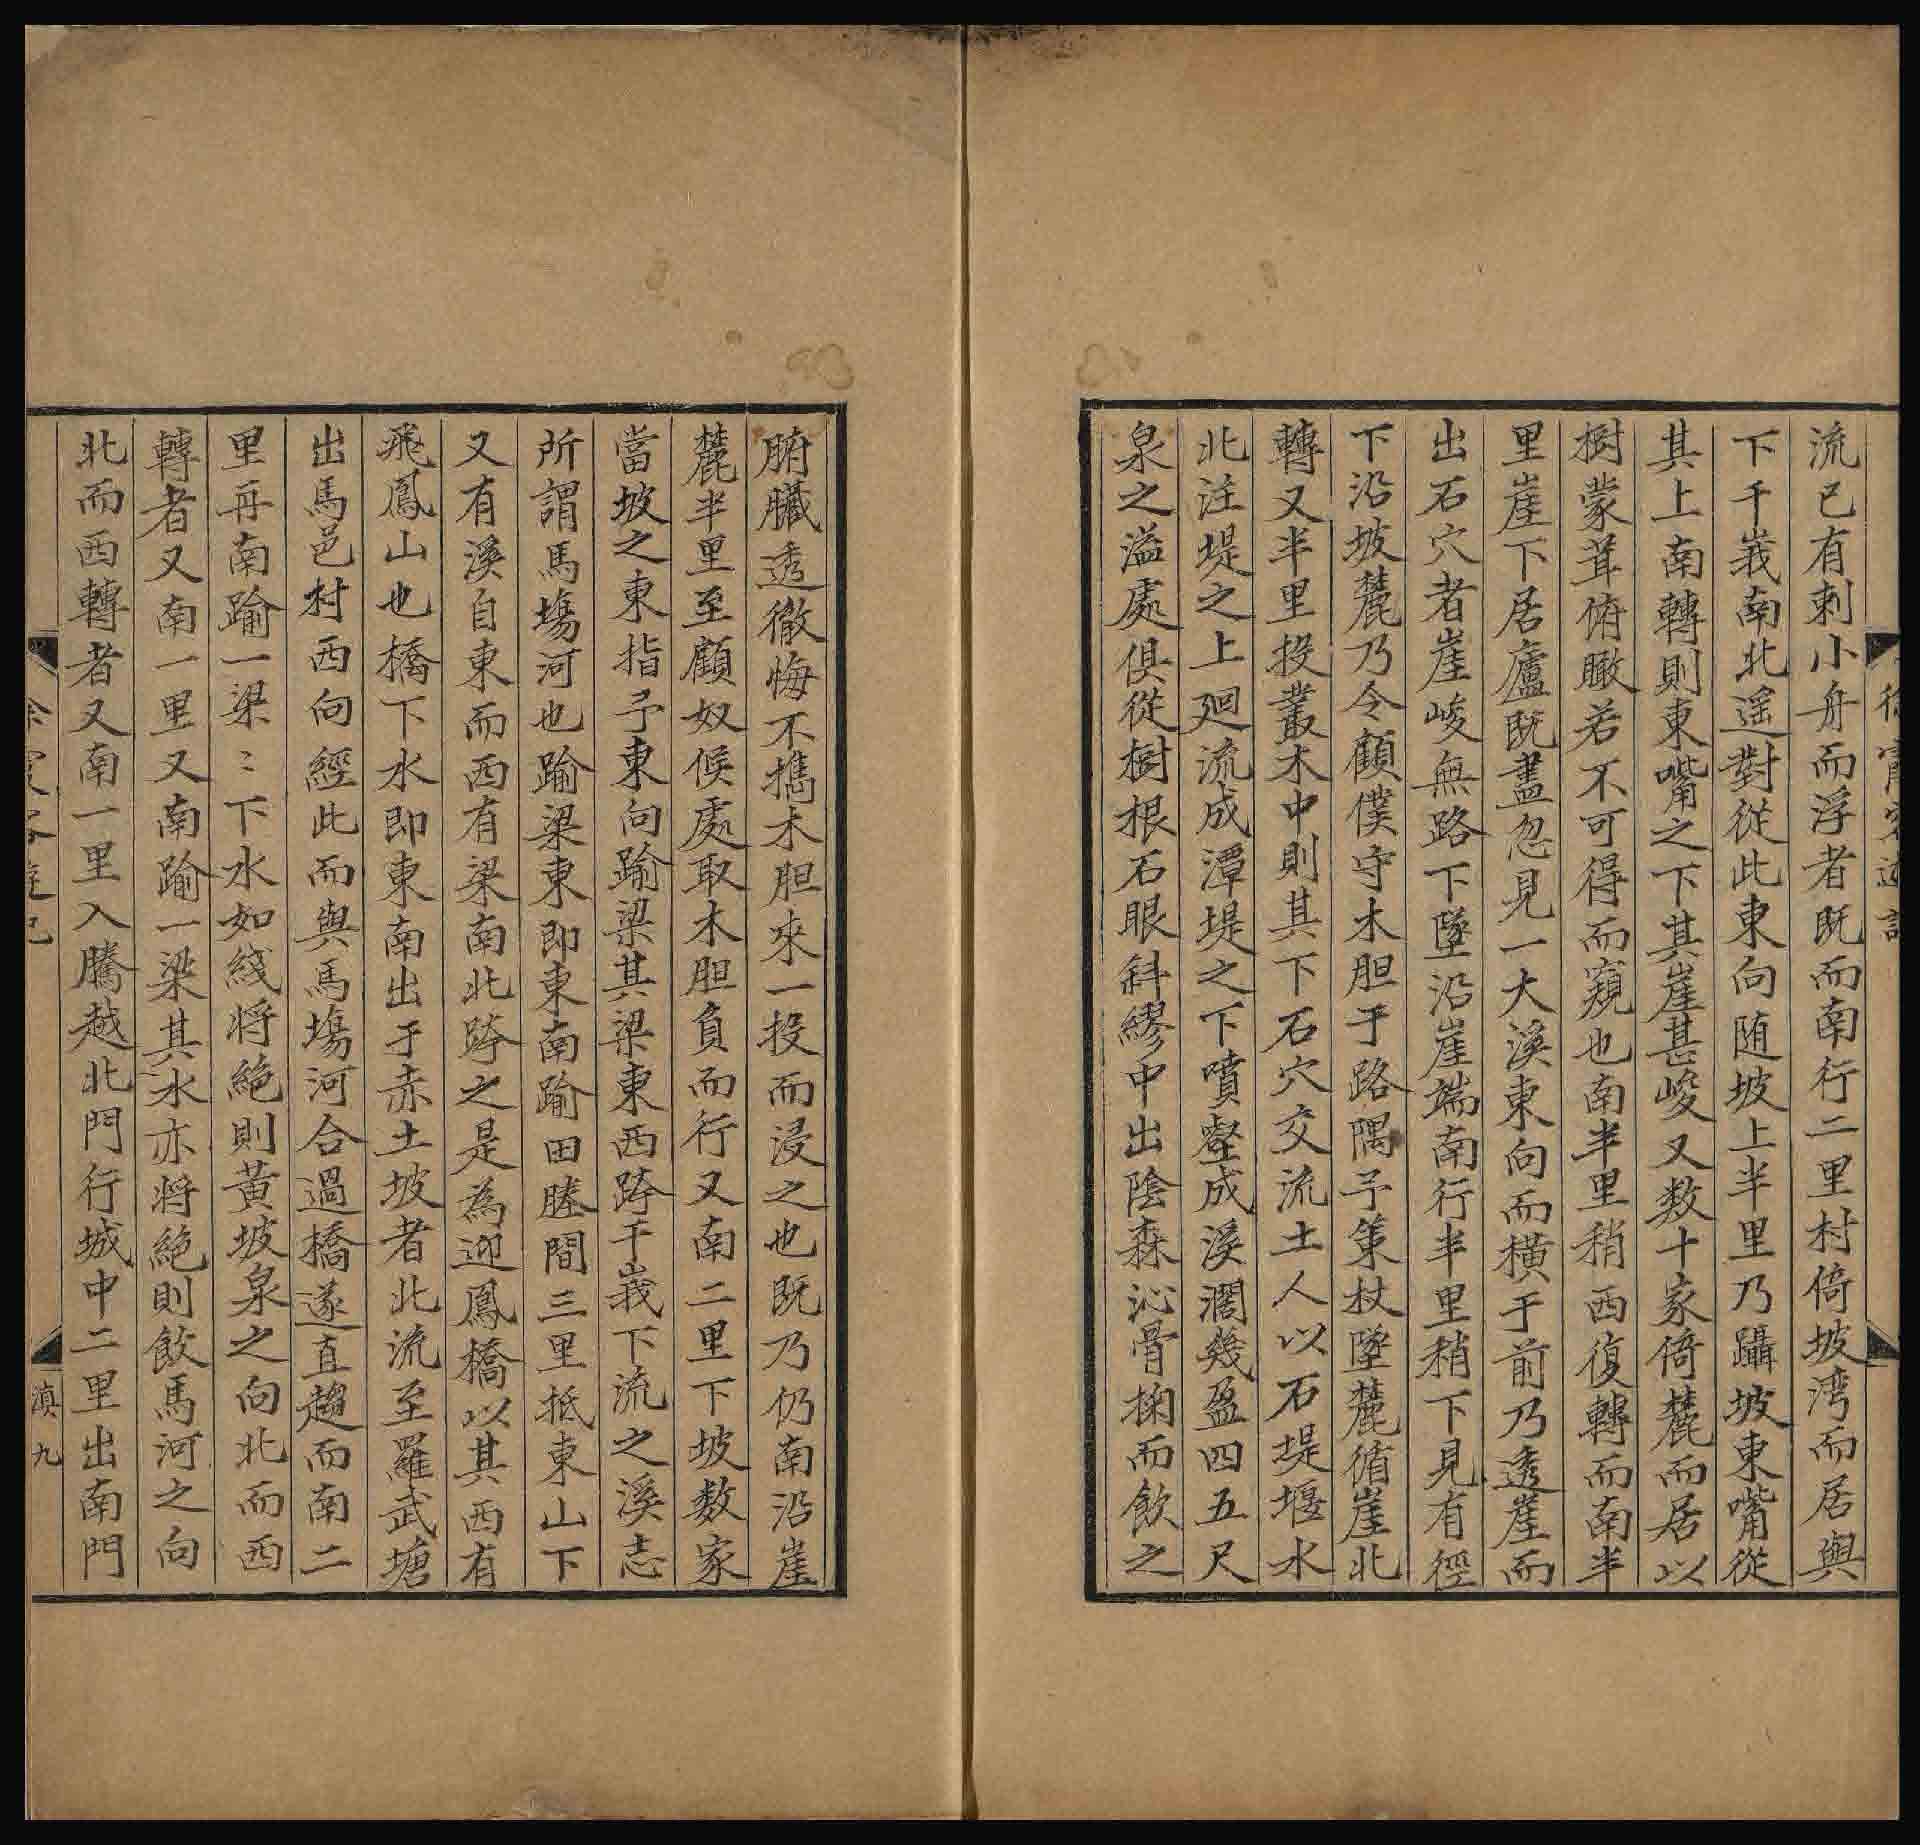 流已有刺小舟而浮者既而南行二里村倚坡湾而居與
下千峩南北遥對從此東向随坡上半里乃躡坡東嘴從
其上南轉則東嘴之下其崖甚峻又数十家倚麓而居以
樹蒙茸俯瞰若不可得而窺也南半里稍西復轉而南半
里崖下居廬既盡忽見一大溪東向而橫于前乃透崖而
出石穴者崖峻無路下墜沿崖端南行半里稍下見有徑
下沿坡麓乃令顧僕守木胆于路隅予策杖墜麓循崖北
轉又半里投叢木中則其下石穴交流土人以石堤堰水
北注堤之上廻流成潭堤之下噴壑成溪濶幾盈四五尺
泉之溢處俱從樹根石眼斜繆中出陰森沁骨掬而飲之
腑臟透徹悔不携木胆來一投而浸之也既乃仍南沿崖
麓半里至顧奴候處取木胆負而行又南二里下坡数家
當坡之東指予東向踰梁其梁東西跨千峩下流之溪志
所謂馬塲河也踰梁東即東南踰田塍間三里抵東山下
又有溪自東而西有梁南北跨之是為迎鳳橋以其西有
飛鳳山也橋下水即東南出于赤土坡者北流至羅武塘
出馬邑村西向經此而與馬塲河合過橋遂直趨而南二
里再南踰一梁〻下水如綫将絶則黃坡泉之向北而西
轉者又南一里又南踰一梁其水亦将絶則飲馬河之向
北而西轉者又南一里入騰越北門行城中二里出南門
滇九